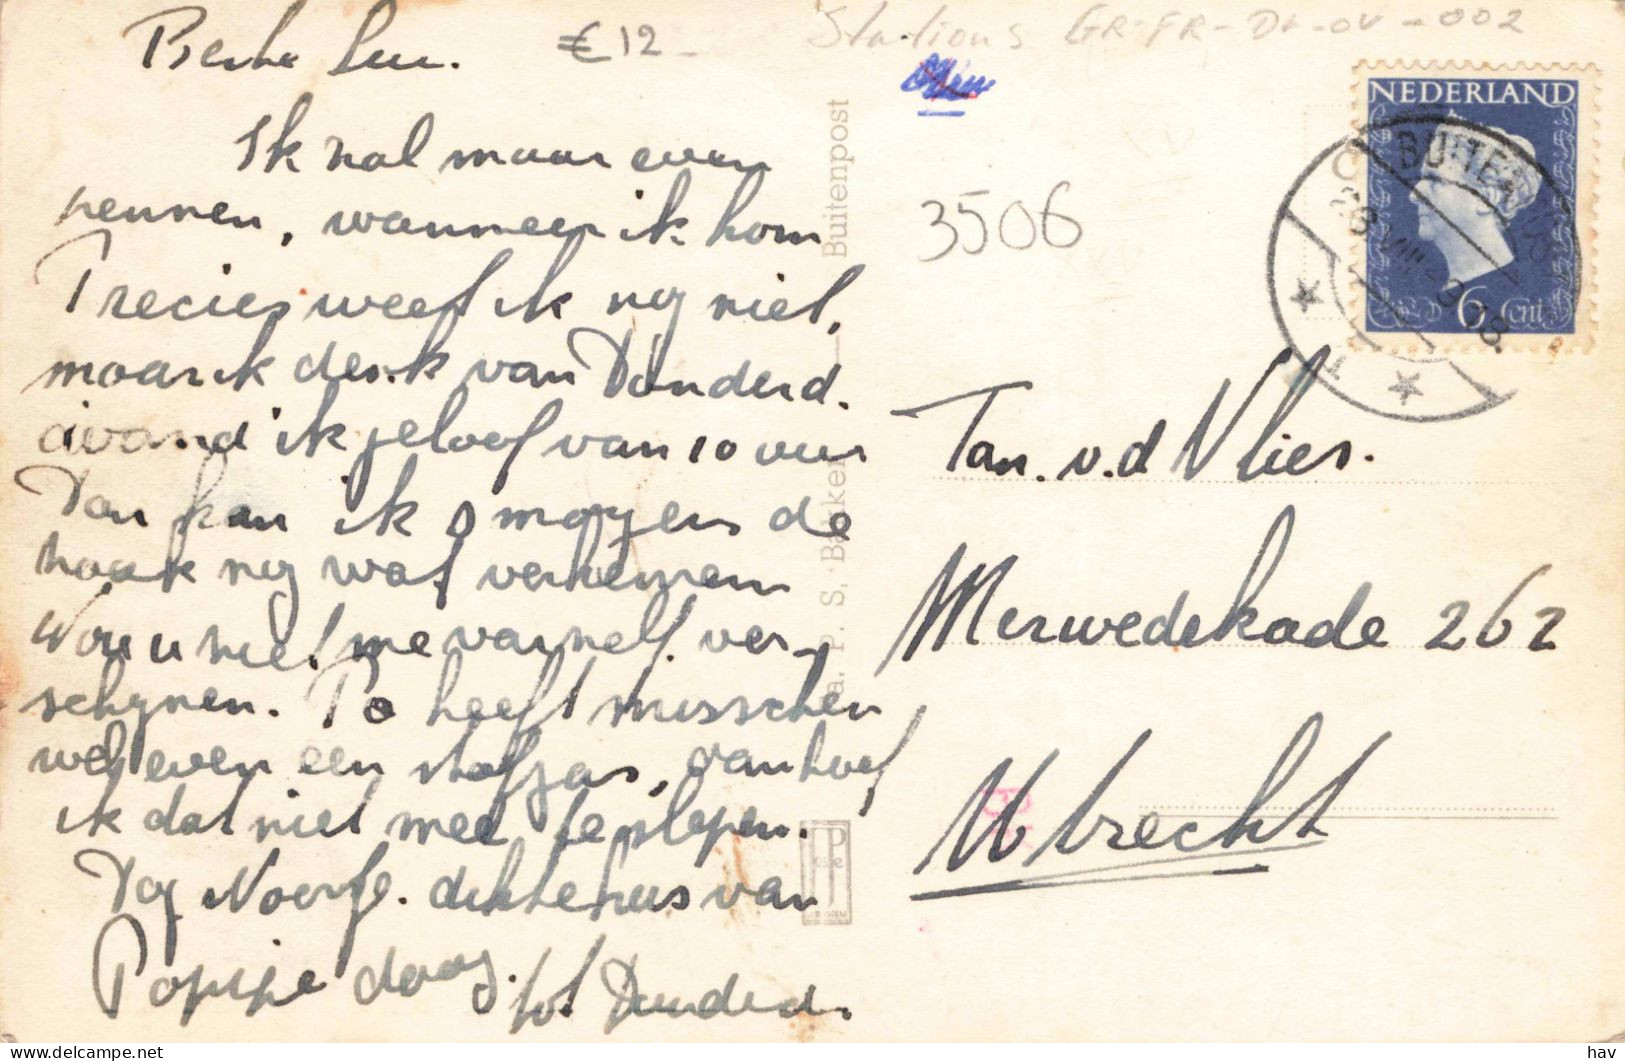 € 12
Stations GR-FR-DR-OV-002
Beste Luu.
Ik zal maar even
pennen, wanneer ik kom
Precies weet ik nog niet,
maar ik denk van Donderd.
avond ik geloof van 10 uur
Dan kan ik s morgens de
hoek nog wat verkennen
Wou u niet me
ver-
schynen. Pa heeft misschien
wel even een stofjas, dan hoef
ik dat niet mee te slepen.
Dag
dikke kus van
Poppie
tot Donderd.
Fa. P. S. Bakker — Buitenpost
JP
ARNHEM
3506
NEDERLAND
6 cnt
BUITENPOST
Tan. v.d Vlies.
Merwedekade 262
Utrecht
hav